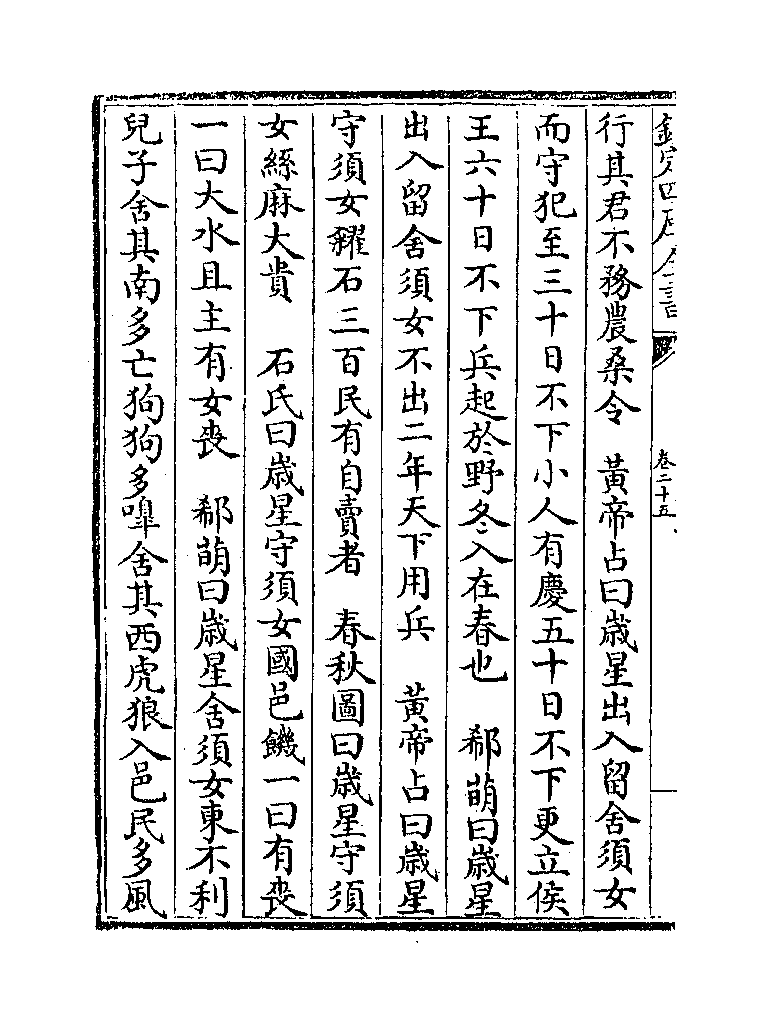 欽定四庫全書
卷二十五
行其君不務農桑令　黃帝占曰歲星出入留舍須女
而守犯至三十日不下小人有慶五十日不下更立侯
王六十日不下兵起於野冬入在春也　郗萌曰歲星
出入留舍須女不出二年天下用兵　黃帝占曰歲星
守須女糴石三百民有自賣者　春秋圖曰歲星守須
女絲麻大貴　石氏曰歲星守須女國邑饑一曰有喪
一曰大水且主有女喪　郗萌曰歲星舍須女東不利
兒子舍其南多亡狗狗多嘷舍其西虎狼入邑民多風